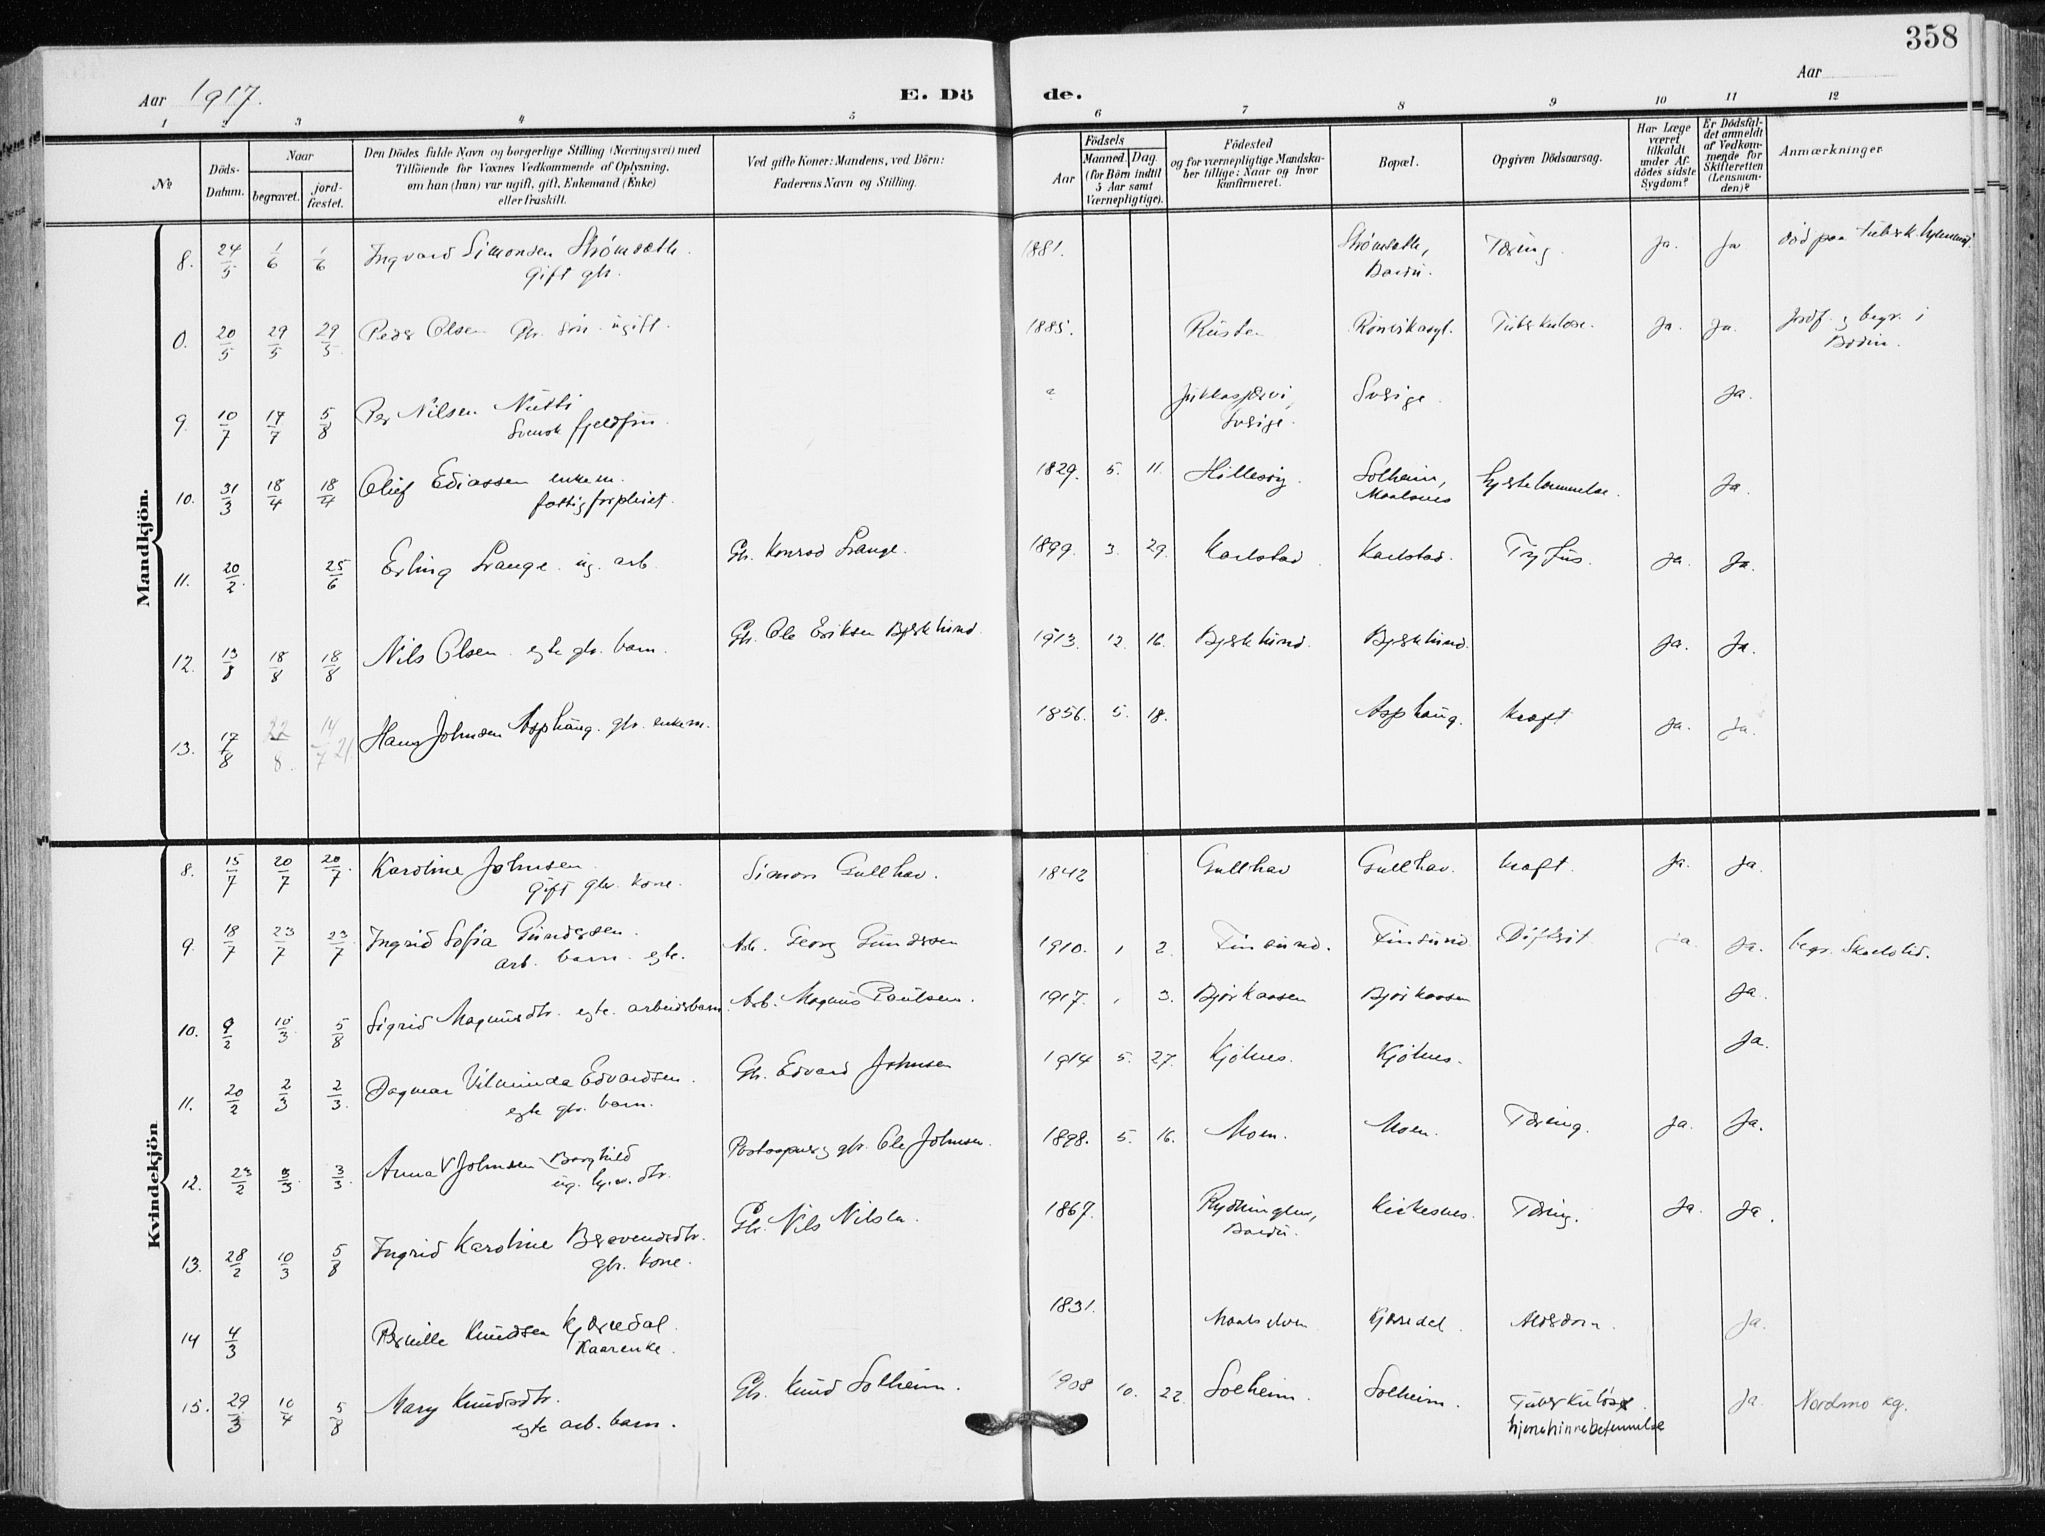 358
Aar 1917.
E. Dö de.
Aar
1 2 3 4 5 6 7 8 9 10 11 12
№
Döds-Datum.
Naar
begravet.
jord-fæstet.
Den Dödes fulde Navn og borgerlige Stilling (Næringsvei) med
Tilföiende for Voxnes Vedkommende af Oplysning,
om han (hun) var ugift, gift, Enkemand (Enke)
eller fraskilt.
Ved gifte Koner: Mandens, ved Börn:
Faderens Navn og Stilling.
Födsels
Aar
Maaned. Dag.
(for Börn indtil
5 Aar samt
Værnepligtige).
Födested
og for værnepligtige Mandska-
ber tillige: Naar og hvor
konfirmeret.
Bopæl.
Opgiven Dödsaarsag.
Har Læge
været
tilkaldt
under Af-
dödes sidste
Sygdom?
Er Dödsfal-
det anmeldt
af Vedkom-
mende for
Skifteretten
(Lensman-
den)?
Anmærkninger
Mandkjön.
8. 24/5 1/6 1/6 Ingvard Simonsen Strømsæth. 1881. Strømsæth, Tæring. Ja. Ja
gift gbr. Bardu.
0. 20/5 29/5 29/5 Peder Olsen Gbr. søn ugift. 1885. Rusten Rønvikasyl. Tuberkulose. Ja. Ja. Jordf. og begr. i
Bodin.
9. 10/7 17/7 5/8 Per Nilsen Nutti Jukkasjærvi, Sverige. Ja.
svensk fjeldfin. Sverige.
10. 31/3 18/4 18/4 Oluf Ediassen enkem. 1829. 5. 11. Hillesøy Solheim, Ja.
fattigforpleiet.
11. 20/2. 25/6 Erling Lange. ug. arb. Gb. Konrad Lange. 1899. 3. 29. Karlstad. Karlstad. Tyfus. Ja. Ja.
12. 13/8 18/8 18/8 Nils Olsen. egte gbr. barn. Gb. Ole Eriksen Bjerklund. 1913. 12. 16. Bjerklund. Bjerklund. Ja. Ja.
13. 17/8 22/8. 14/7 21. Hans Johnsen Asphaug. gbr. enkem. 1856. 5. 18. Asphaug. Kræft Ja. Ja.
Kvindekjön
8. 15/7 20/7 20/7. Karoline Johnsen Simon Gullhav. 1842 Gullhav Gullhav. Kræft. Ja. Ja.
gift gbr. kone.
9. 18/7 23/7 23/7 Ingrid Sofia Gundersen. Arb. Georg Gundersen 1910. 1 2. Finsund. Finsund Difterit Ja. Ja.
arb. barn. egte.
10. 9/2 10/3 5/8 Sigrid Magnusdtr. egte. arbeidsbarn. Arb. Magnus Paulsen. 1917. 1 3. Bjørkaasen Bjørkaasen Ja.
11. 20/2 2/3 2/3. Dagmar Vilminda Edvardsen. Gb. Edvard Johnsen 1914 5. 27. Kjølnes. Kjølnes. Ja.
egte gbr. barn.
12. 23/2 3/3. 3/3. Anna V Johnsen Borghild gbr. Ole Johnsen. 1898. 5. 16. Moen. Moen. Tæring. Ja. Ja.
13. 28/2 10/3 5/8 Ingrid Karoline Gb. Nils Nilsen. 1867. Kirkesnes. Tæring. Ja. Ja.
gbr. kone. Bardu.
14 4/3 Pernille Knudsen Kjærredal. 1831. Maalselven Kjærredal. Alderdom. Ja.
Kaarenke.
15. 29/3 10/4 5/8 Mary Knudsdtr. Gb. Knud Solheim. 1908 10. 22. Solheim. Solheim. Tuberkuløs Ja. Nordmo kg.
egte arb. barn. hjernehinnebetennelse